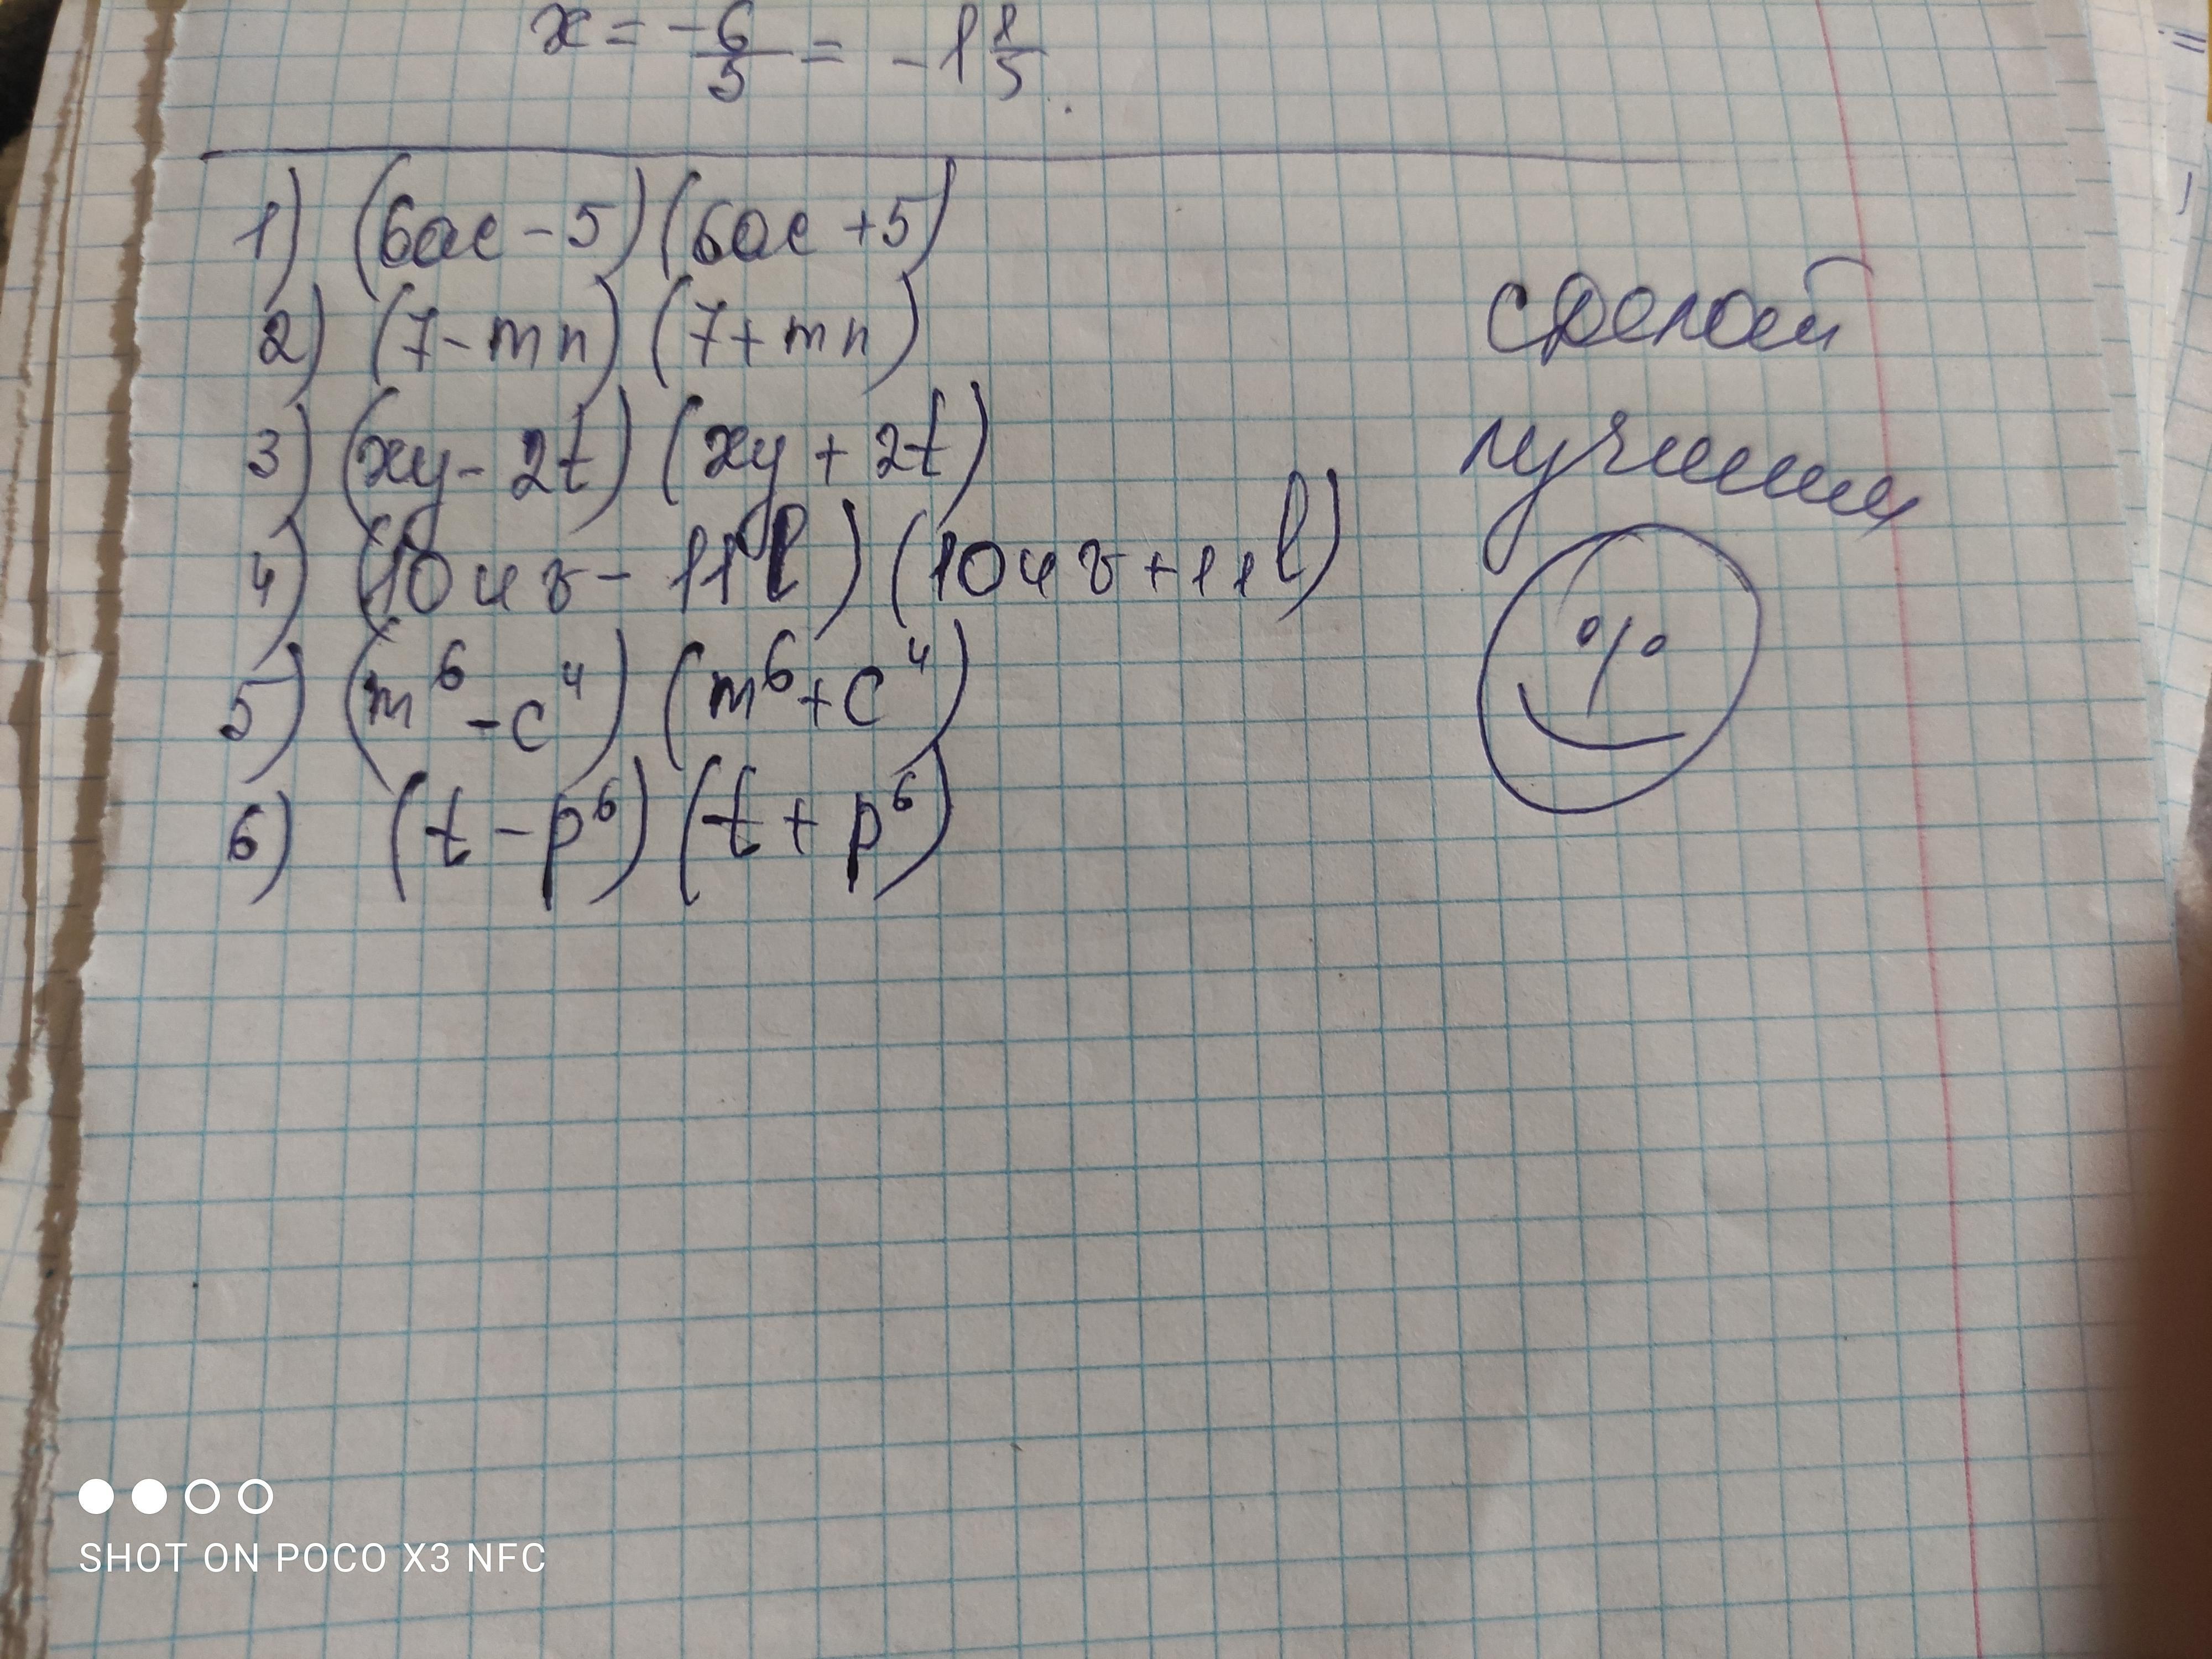 x = -6/5 = -1 1/5.
1) (6ac - 5)(6ac + 5)
2) (7 - mn)(7 + mn)
3) (xy - 2t)(xy + 2t)
4) (10uv - 11l)(10uv + 11l)
5) (m⁶ - c⁴)(m⁶ + c⁴)
6) (t - p⁶)(t + p⁶)
сделай
лучшим
SHOT ON POCO X3 NFC